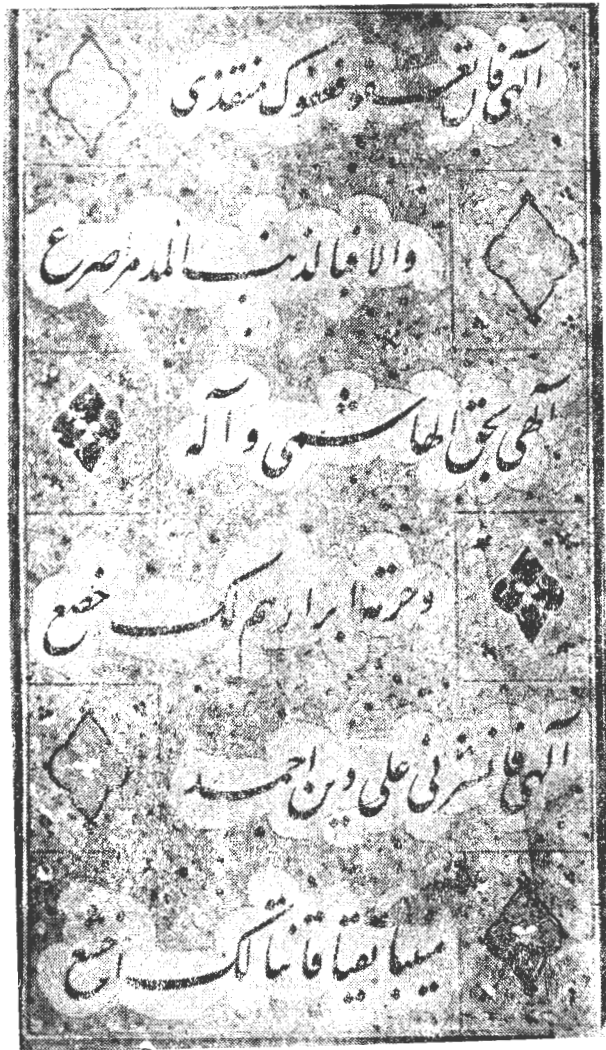 الهی فان تعف فعفوک منقذی
والا فبالذنب المدمر اصرع
الهی بحق الهاشمی و آله
وحرمة ابرار هم لک خضع
الهی فانشرنی علی دین احمد
منیبا تقیا قانتا لک اخضع